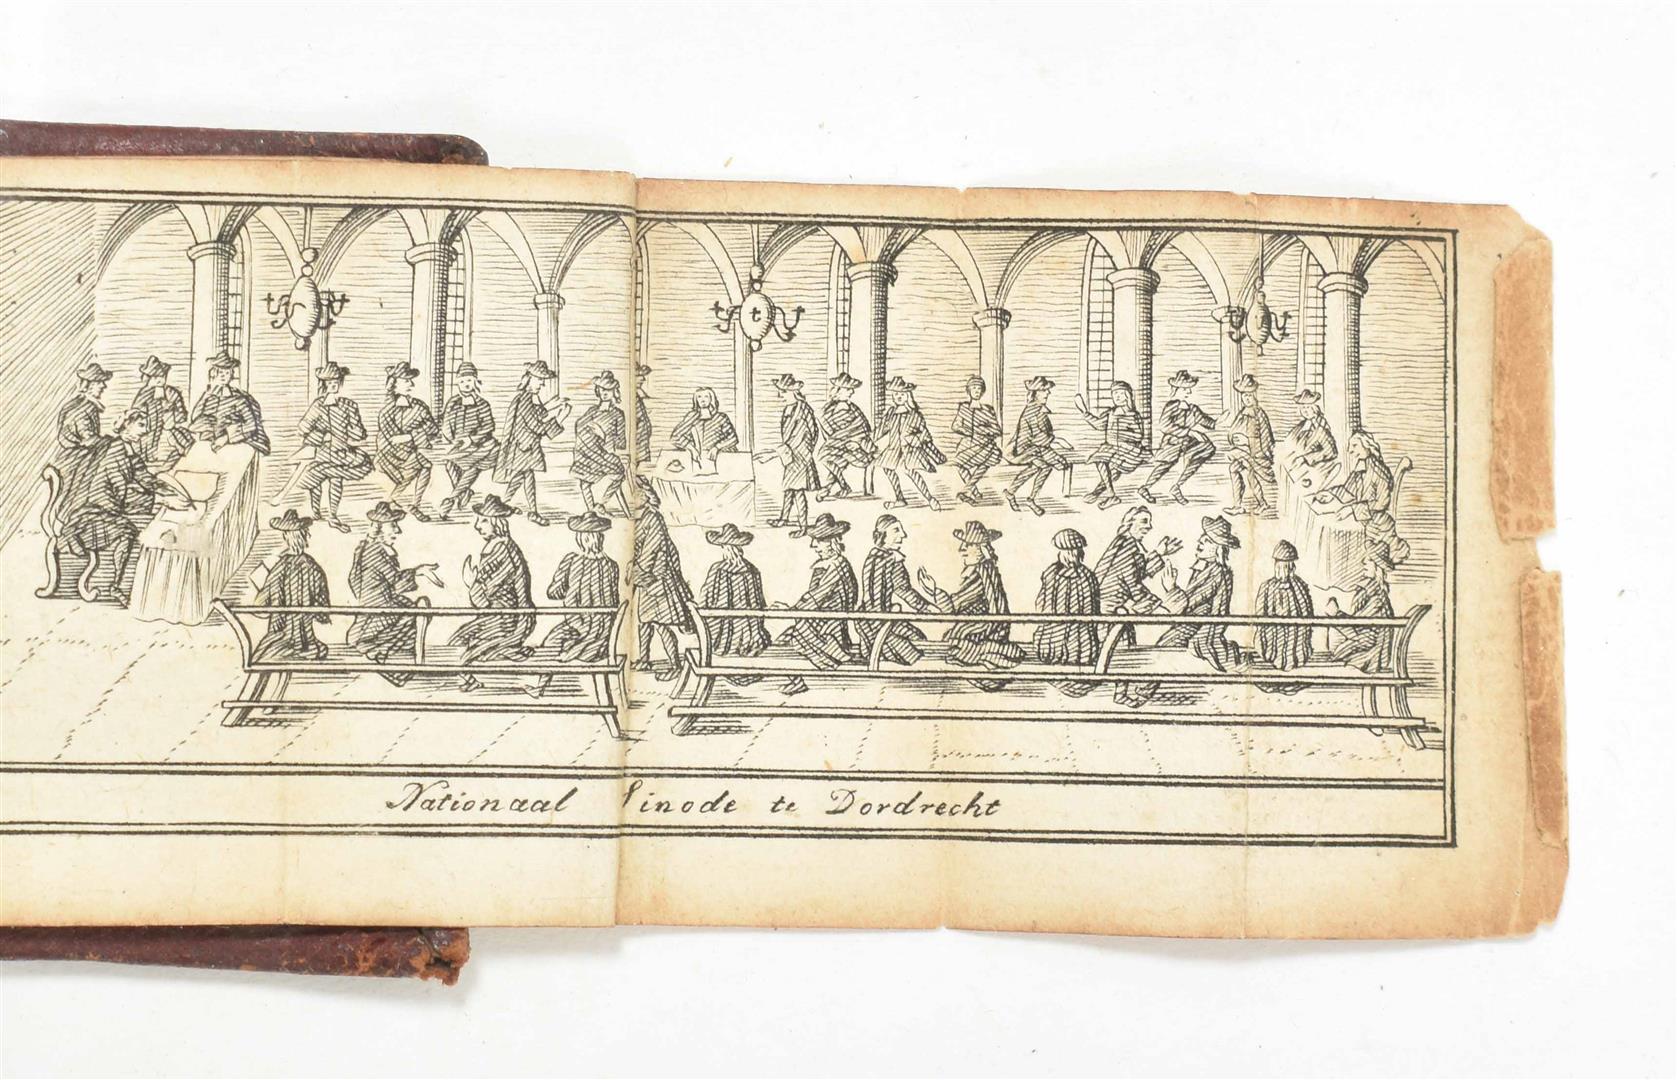 t
Nationaal Sinode te Dordrecht